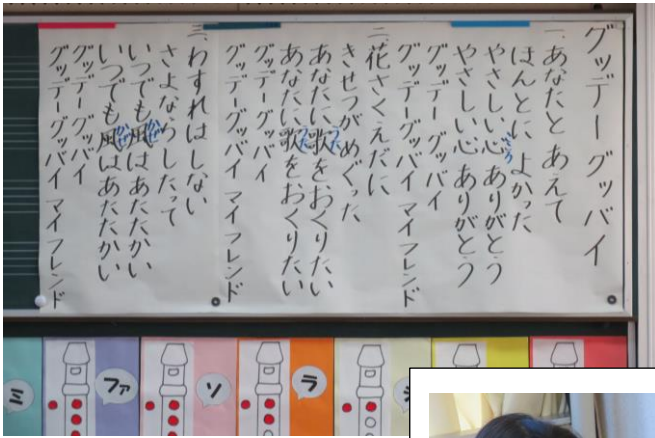 グッデー グッバイ
一、あなたと あえて
ほんとに よかった
やさしい心 ありがとう
やさしい心 ありがとう
グッデー グッバイ
グッデーグッバイ マイフレンド
二、花さくえだに
きせつがめぐった
あなたに歌をおくりたい
あなたに歌をおくりたい
グッデー グッバイ
グッデーグッバイ マイフレンド
三、わすれはしない
さよならしたって
いつでも風はあたたかい
いつでも風はあたたかい
グッデー グッバイ
グッデーグッバイ マイフレンド
ミ
ファ
ソ
ラ